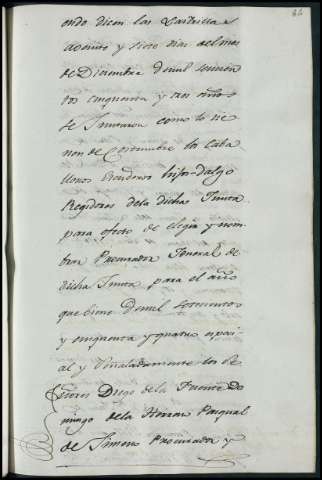 ondo dicen las Castrillas
a veinte y siete dias del mes
de Diziembre de mil setecien
tos cinquenta y tres años
se Juntaron como lo tie
nen de Costumbre los Caba
lleros hijos-dalgo
Regidores de la dicha Junta
para efecto de elegir y nom
brar Procurador General de
dicha Junta para el año
que biene de mil setecientos
y cinquenta y quatro espezi
al y Señaladamente los Se
ñores Diego de la Fuente Do
mingo de la Pasqual
de Simon Procurador y